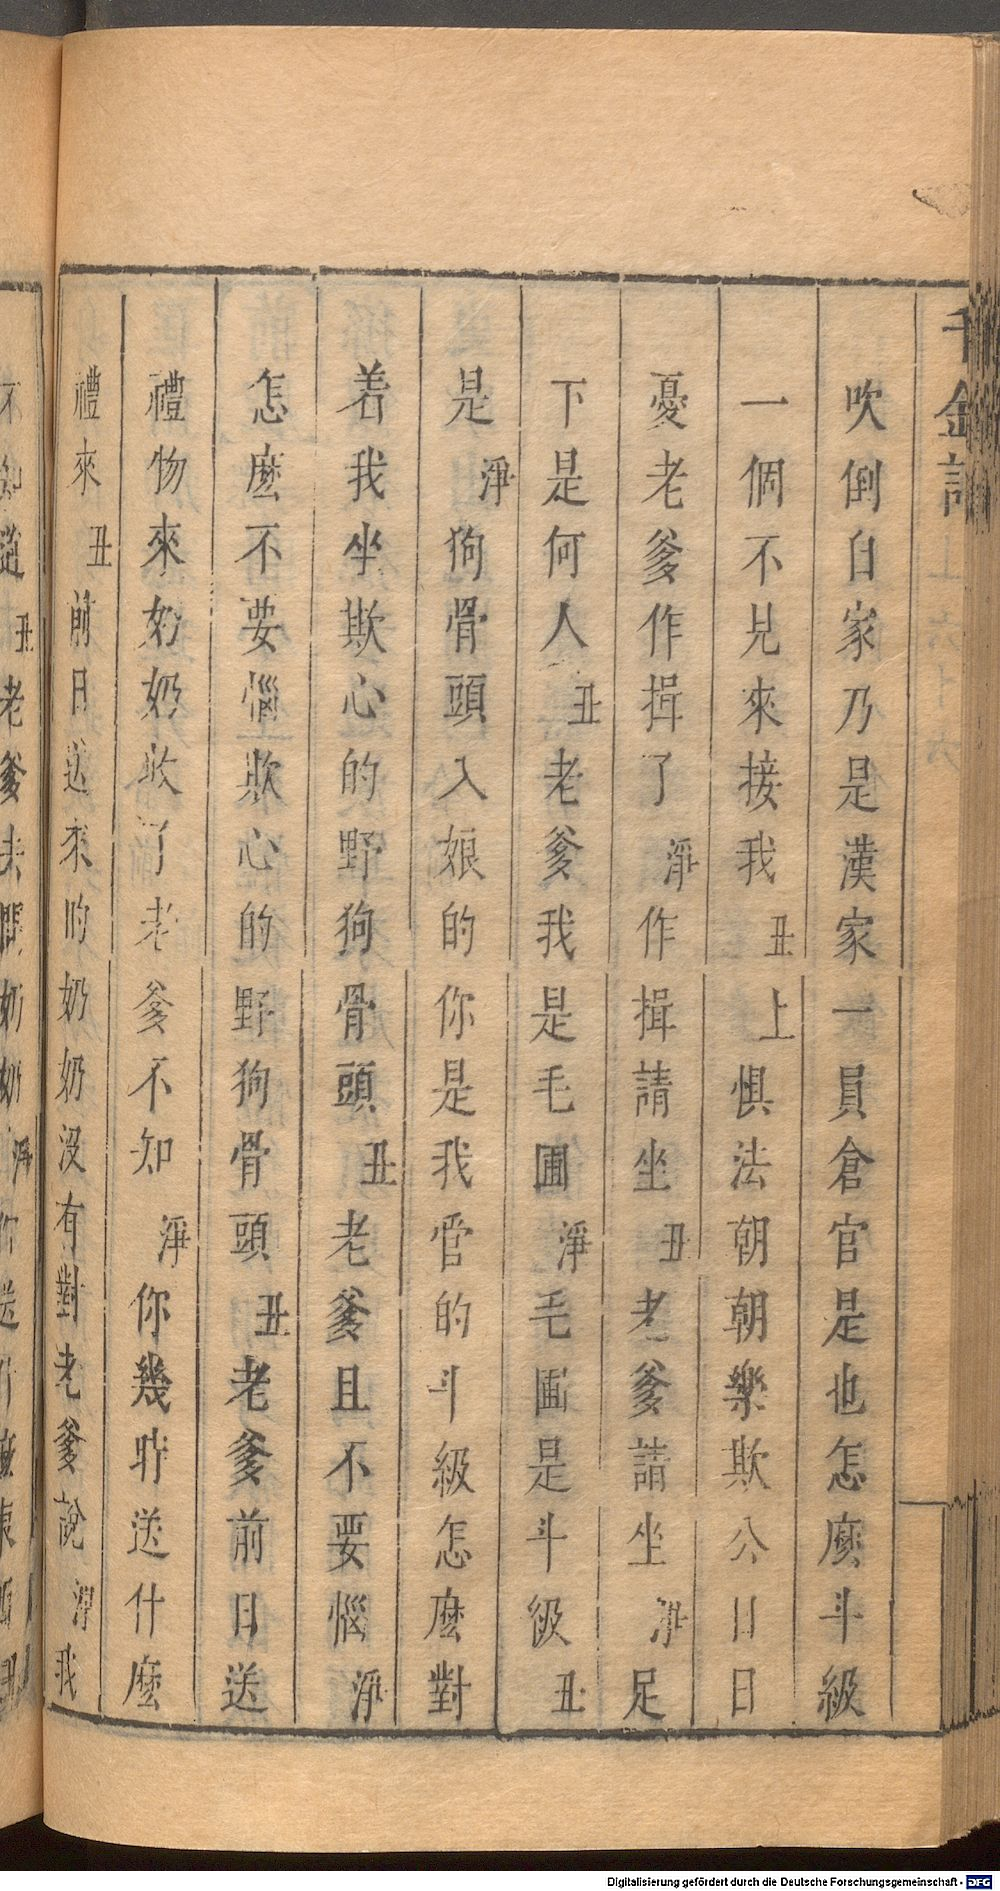 千金記
吹倒自家乃是漢家一員倉官是也怎麼斗級
一個不見來接我丑上懼法朝朝樂欺公日日
憂老爹作揖了淨作揖請坐丑老爹請坐淨足
下是何人丑老爹我是毛圃淨毛圃是斗級丑
是淨狗骨頭入娘的你是我管的斗級怎麽對
着我坐欺心的野狗骨頭丑老爹且不要惱淨
怎麽不要惱欺心的野狗骨頭丑老爹前日送
禮物來奶奶收了老爹不知淨你幾時送什麽
禮來丑前日送來的奶奶沒有對老爹說淨我
不知道丑老爹去問奶奶淨你送什麽東
Digitalisierung gefördert durch die Deutsche Forschungsgemeinschaft - DFG